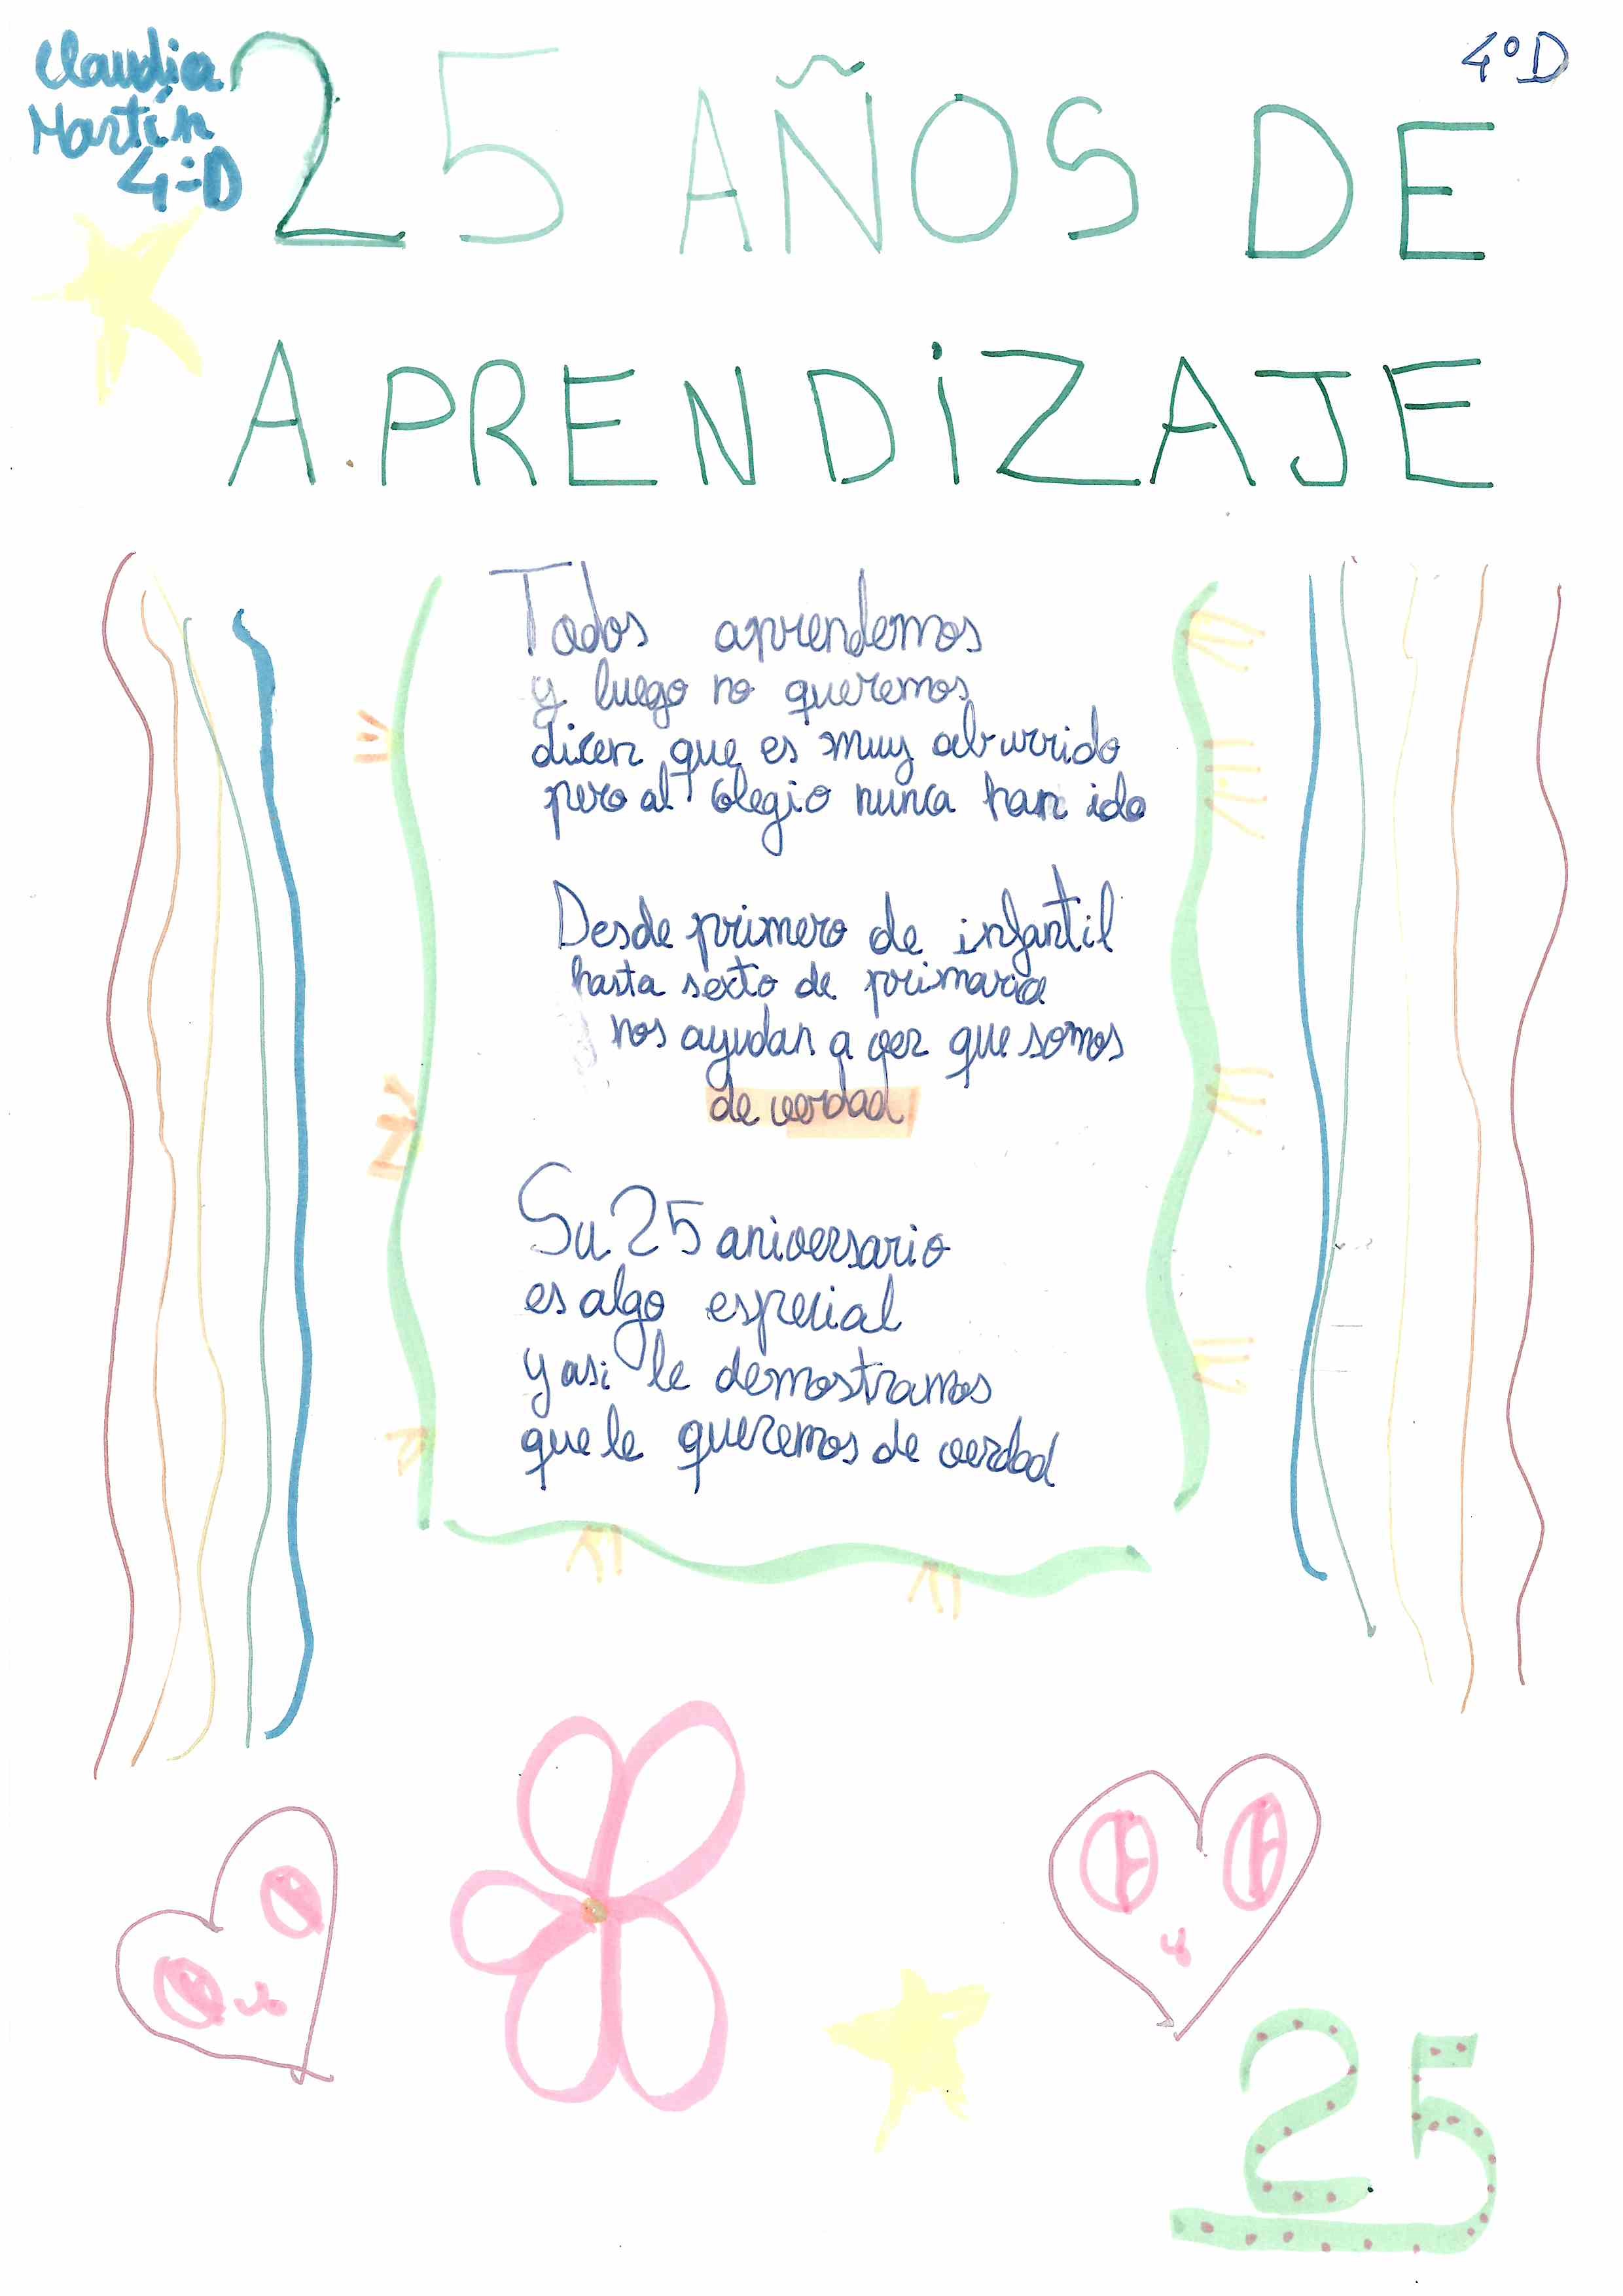 Claudia
Martín
4=D
4ºD
25 AÑOS DE
A.PRENDiZAJE
Todos aprendemos
y luego no queremos
dicen que es muy aburrido
pero al colegio nunca han ido
Desde primero de infantil
hasta sexto de primaria
nos ayudan a ver que somos
de verdad
Su 25 aniversario
es algo especial
y asi le demostramos
que le queremos de verdad
25